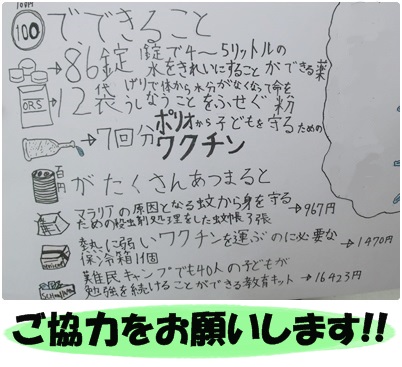 100円
100 でできること
→86錠 1錠で4～5リットルの
水をきれいにすることができる薬
ORS →12袋 げりで体から水分がなくなって命を
うしなうことをふせぐ粉
→7回分 ポリオから子どもを守るための
ワクチン
百円 がたくさんあつまると
マラリアの原因となる蚊から身を守る
ための殺虫剤処理をした蚊帳3張 →967円
熱に弱いワクチンを運ぶのに必要な
保冷箱1個 →1470円
難民キャンプでも40人の子どもが
勉強を続けることができる教育キット →16423円
ご協力をお願いします!!